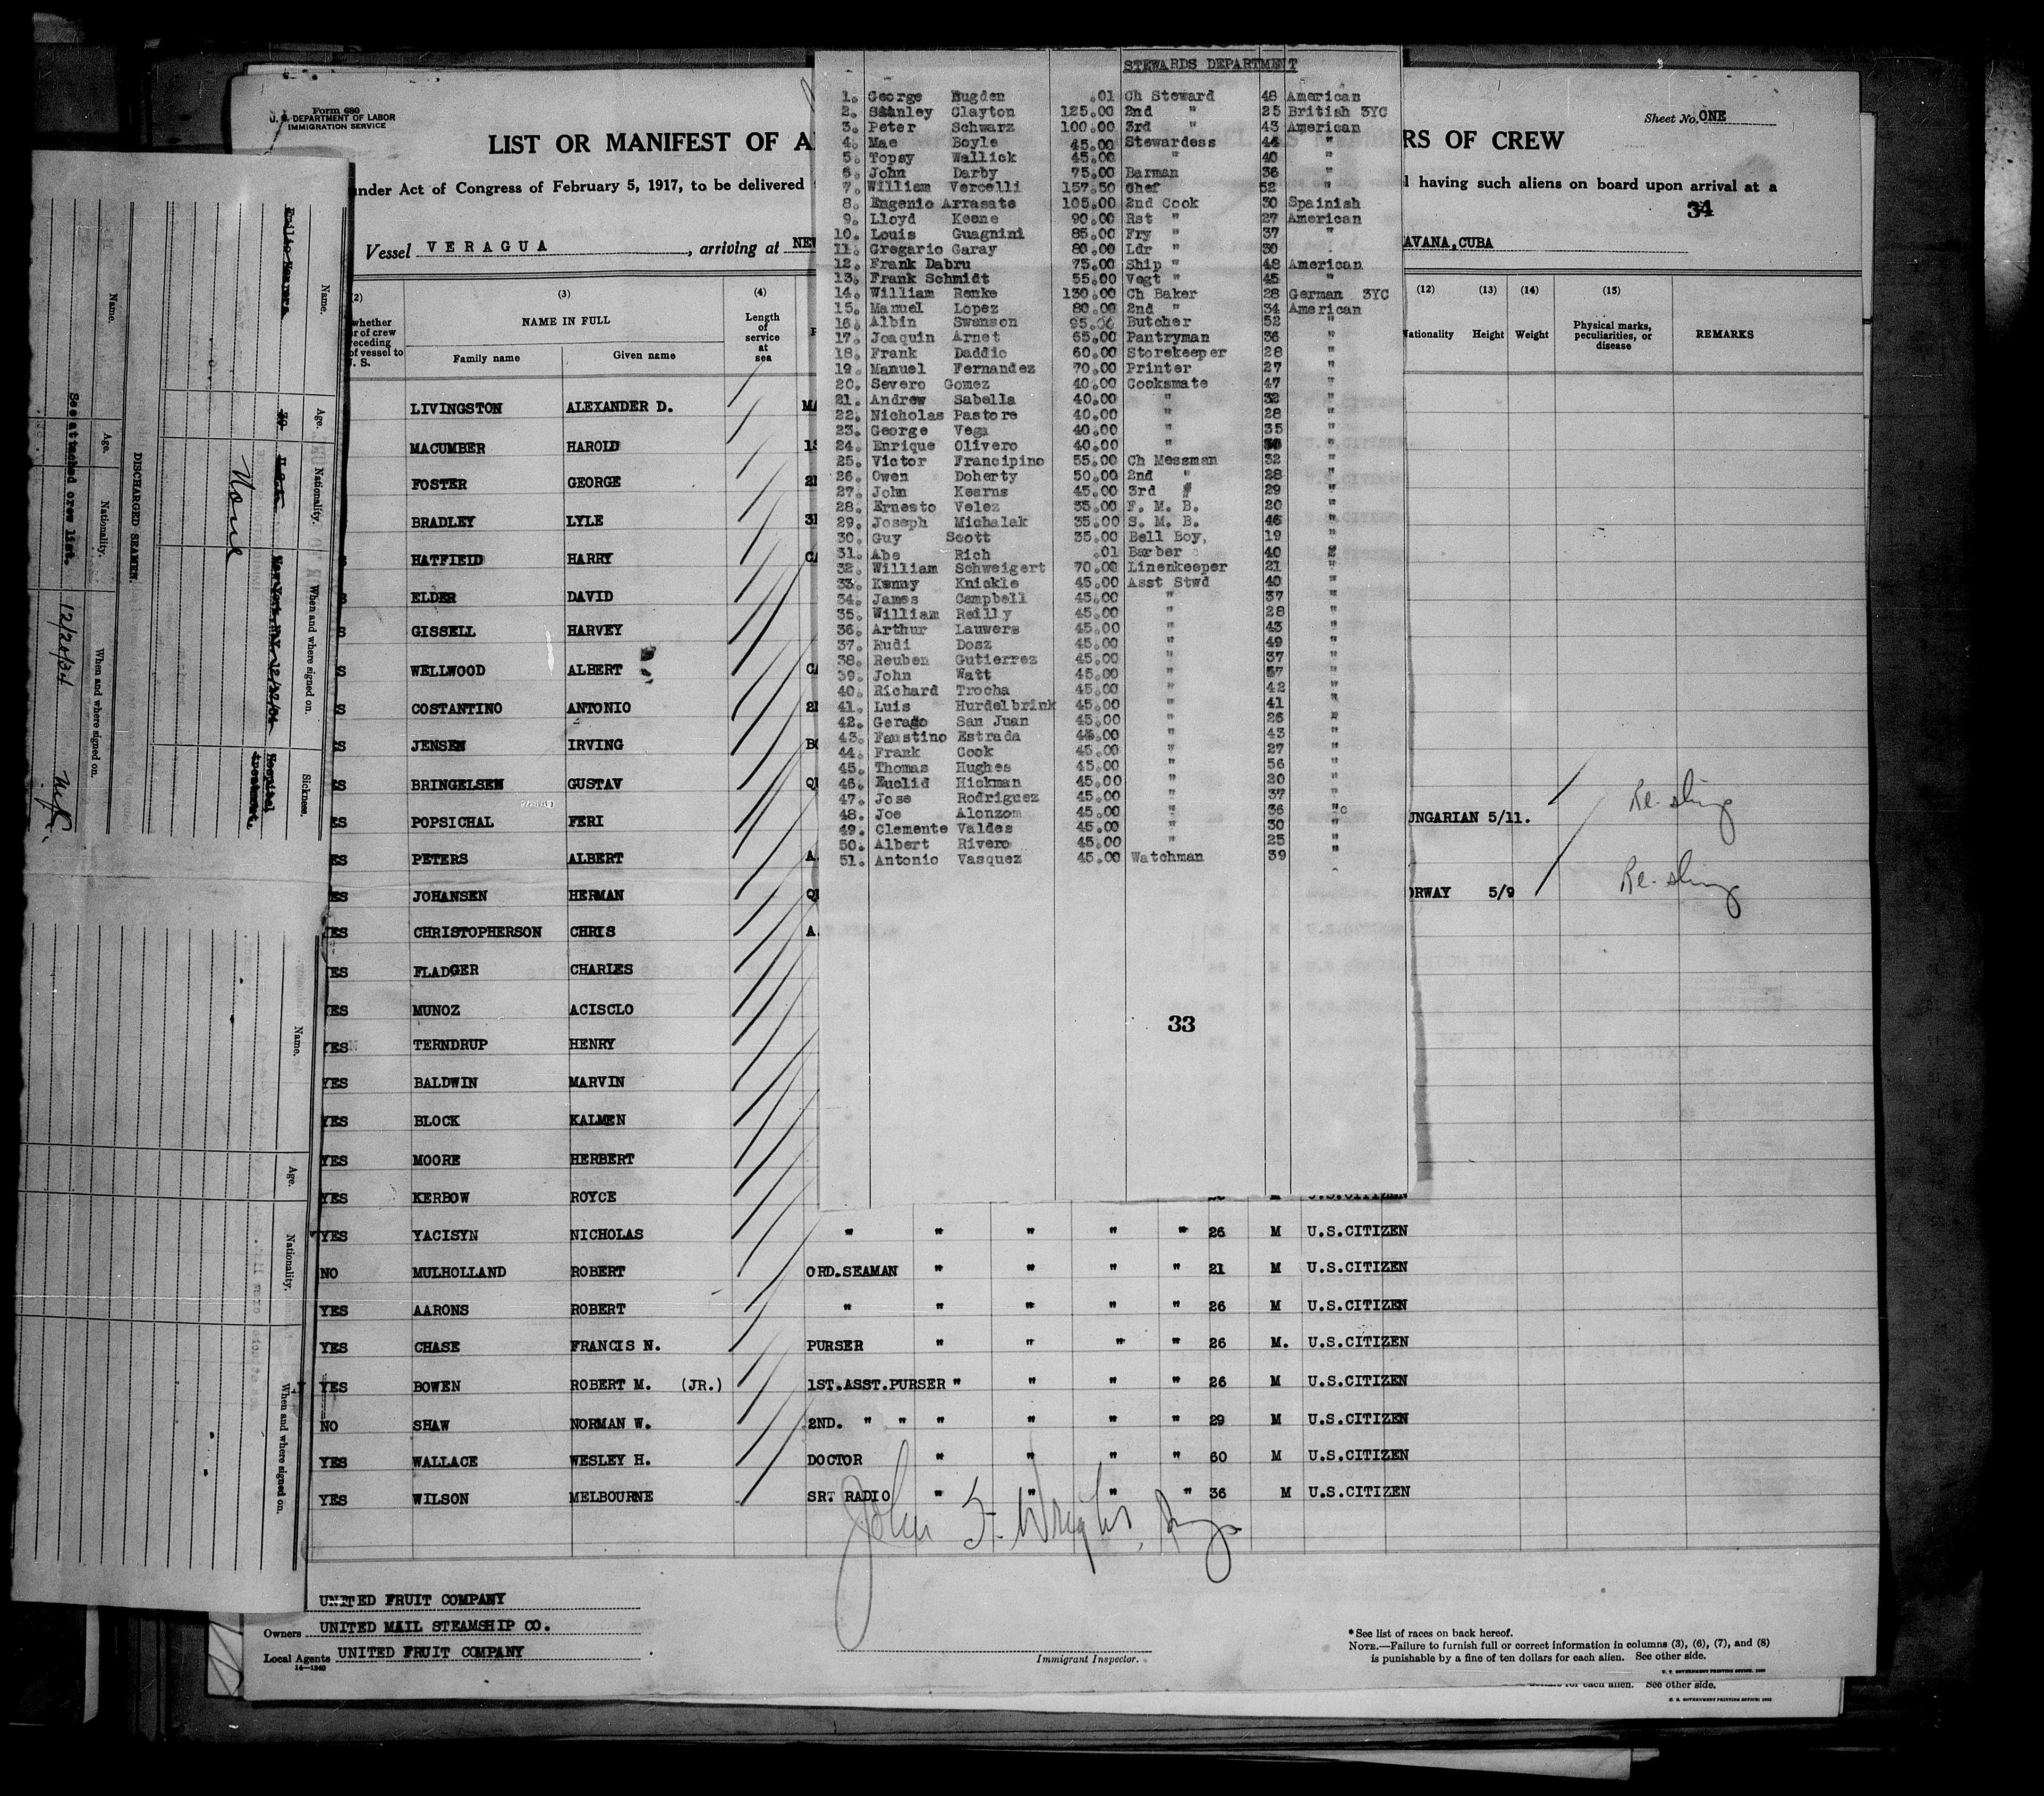 Form 680
U. S. DEPARTMENT OF LABOR
IMMIGRATION SERVICE
LIST OR MANIFEST OF A
RS OF CREW
Sheet No. ONE
under Act of Congress of February 5, 1917, to be delivered
having such aliens on board upon arrival at a
34
Vessel VERAGUA, arriving at NEW
AVANA, CUBA
(2) (3) (4) (12) (13) (14) (15)
whether
r of crew
receding
of vessel to
U. S.
NAME IN FULL
Family name Given name
Length
of
service
at
sea
Nationality Height Weight Physical marks, peculiarities, or disease REMARKS
LIVINGSTON ALEXANDER D. MA
MACUMBER HAROLD 1S
FOSTER GEORGE 2N
BRADLEY LYLE 3R
HATFIEID HARRY CA
ELDER DAVID
S GISSELL HARVEY
S WELLWOOD ALBERT CA
S COSTANTINO ANTONIO 2N
ES JENSEN IRVING BO
ES BRINGELSEN GUSTAV QU
ES POPSICHAL FERI UNGARIAN 5/11. Re-sling
ES PETERS ALBERT A.
ES JOHANSEN HERMAN QU ORWAY 5/9 Re-sling
ES CHRISTOPHERSON CHRIS A.
YES FLADGER CHARLES
YES MUNOZ ACISCLO
YES TERNDRUP HENRY
YES BALDWIN MARVIN
YES BLOCK KALMEN
YES MOORE HERBERT
YES KERBOW ROYCE M U.S.CITIZEN
YES YACISYN NICHOLAS " " " " " 26 M U.S.CITIZEN
NO MULHOLLAND ROBERT ORD.SEAMAN " " " " 21 M U.S.CITIZEN
YES AARONS ROBERT " " " " " 26 M U.S.CITIZEN
YES CHASE FRANCIS N. PURSER " " " " 26 M. U.S.CITIZEN
YES BOWEN ROBERT M. (JR.) 1ST.ASST.PURSER " " " " 26 M U.S.CITIZEN
NO SHAW NORMAN W. 2ND. " " " " " " 29 M U.S.CITIZEN
YES WALLACE WESLEY H. DOCTOR " " " " 60 M U.S.CITIZEN
YES WILSON MELBOURNE SRT RADIO " " " " 36 M U.S.CITIZEN
John F. Wright
UNITED FRUIT COMPANY
Owners UNITED MAIL STEAMSHIP CO.
Local Agents UNITED FRUIT COMPANY
14—1240
Immigrant Inspector.
*See list of races on back hereof.
NOTE.—Failure to furnish full or correct information in columns (3), (6), (7), and (8)
is punishable by a fine of ten dollars for each alien. See other side.
U. S. GOVERNMENT PRINTING OFFICE:
for each alien. See other side.
U. S. GOVERNMENT PRINTING OFFICE:
STEWARDS DEPARTMENT
1. George Hugden .01 Ch Steward 48 American
2. Stanley Clayton 125.00 2nd " 25 British 3YC
3. Peter Schwarz 100.00 3rd " 43 American
4. Mae Boyle 45.00 Stewardess 44 "
5. Topsy Wallick 45.00 " 40 "
6. John Darby 75.00 Barman 36 "
7. William Vercelli 157.50 Chef 52 "
8. Eugenio Arrasate 105.00 2nd Cook 30 Spainish
9. Lloyd Keene 90.00 Rst " 27 American
10. Louis Guagnini 85.00 Fry " 37 "
11. Gregario Garay 80.00 Ldr " 30 "
12. Frank Dabru 75.00 Ship " 48 American
13. Frank Schmidt 55.00 Vegt " 45 "
14. William Renke 130.00 Ch Baker 28 German 3YC
15. Manuel Lopez 80.00 2nd " 34 American
16. Albin Swanson 95.00 Butcher 52 "
17. Joaquin Arnet 65.00 Pantryman 36 "
18. Frank Daddio 60.00 Storekeeper 28 "
19. Manuel Fernandez 70.00 Printer 27 "
20. Severo Gomez 40.00 Cooksmate 47 "
21. Andrew Sabella 40.00 " 32 "
22. Nicholas Pastore 40.00 " 28 "
23. George Vega 40.00 " 35 "
24. Enrique Olivero 40.00 " "
25. Victor Francipino 55.00 Ch Messman 32 "
26. Owen Doherty 50.00 2nd " 28 "
27. John Kearns 45.00 3rd " 29 "
28. Ernesto Velez 35.00 F. M. B. 20 "
29. Joseph Michalak 35.00 S. M. B. 46 "
30. Guy Scott 35.00 Bell Boy, 19 "
31. Abe Rich .01 Barber 40 "
32. William Schweigert 70.00 Linenkeeper 21 "
33. Kenny Knickle 45.00 Asst Stwd 40 "
34. James Campbell 45.00 " 37 "
35. William Reilly 45.00 " 28 "
36. Arthur Lauwers 45.00 " 43 "
37. Rudi Dosz 45.00 " 49 "
38. Reuben Gutierrez 45.00 " 37 "
39. John Watt 45.00 " 57 "
40. Richard Trocha 45.00 " 42 "
41. Luis Hurdelbrink 45.00 " 41 "
42. Gerado San Juan 45.00 " 26 "
43. Faustino Estrada 45.00 " 43 "
44. Frank Cook 45.00 " 27 "
45. Thomas Hughes 45.00 " 56 "
46. Euclid Hickman 45.00 " 20 "
47. Jose Rodriguez 45.00 " 37 "
48. Joe Alonzom 45.00 " 36 "c
49. Clemente Valdes 45.00 " 30 "
50. Albert Rivero 45.00 " 25 "
51. Antonio Vasquez 45.00 Watchman 39 "
33
Name. Age. Nationality. When and where signed on. Sickness.
Emilio 30 U.S.C. New York, N.Y. Hospital treatment.
None
DISCHARGED SEAMEN.
Name. Age. Nationality. When and where signed on.
See attached crew list. 12/28/34
Name. Age. Nationality. When and where signed on.